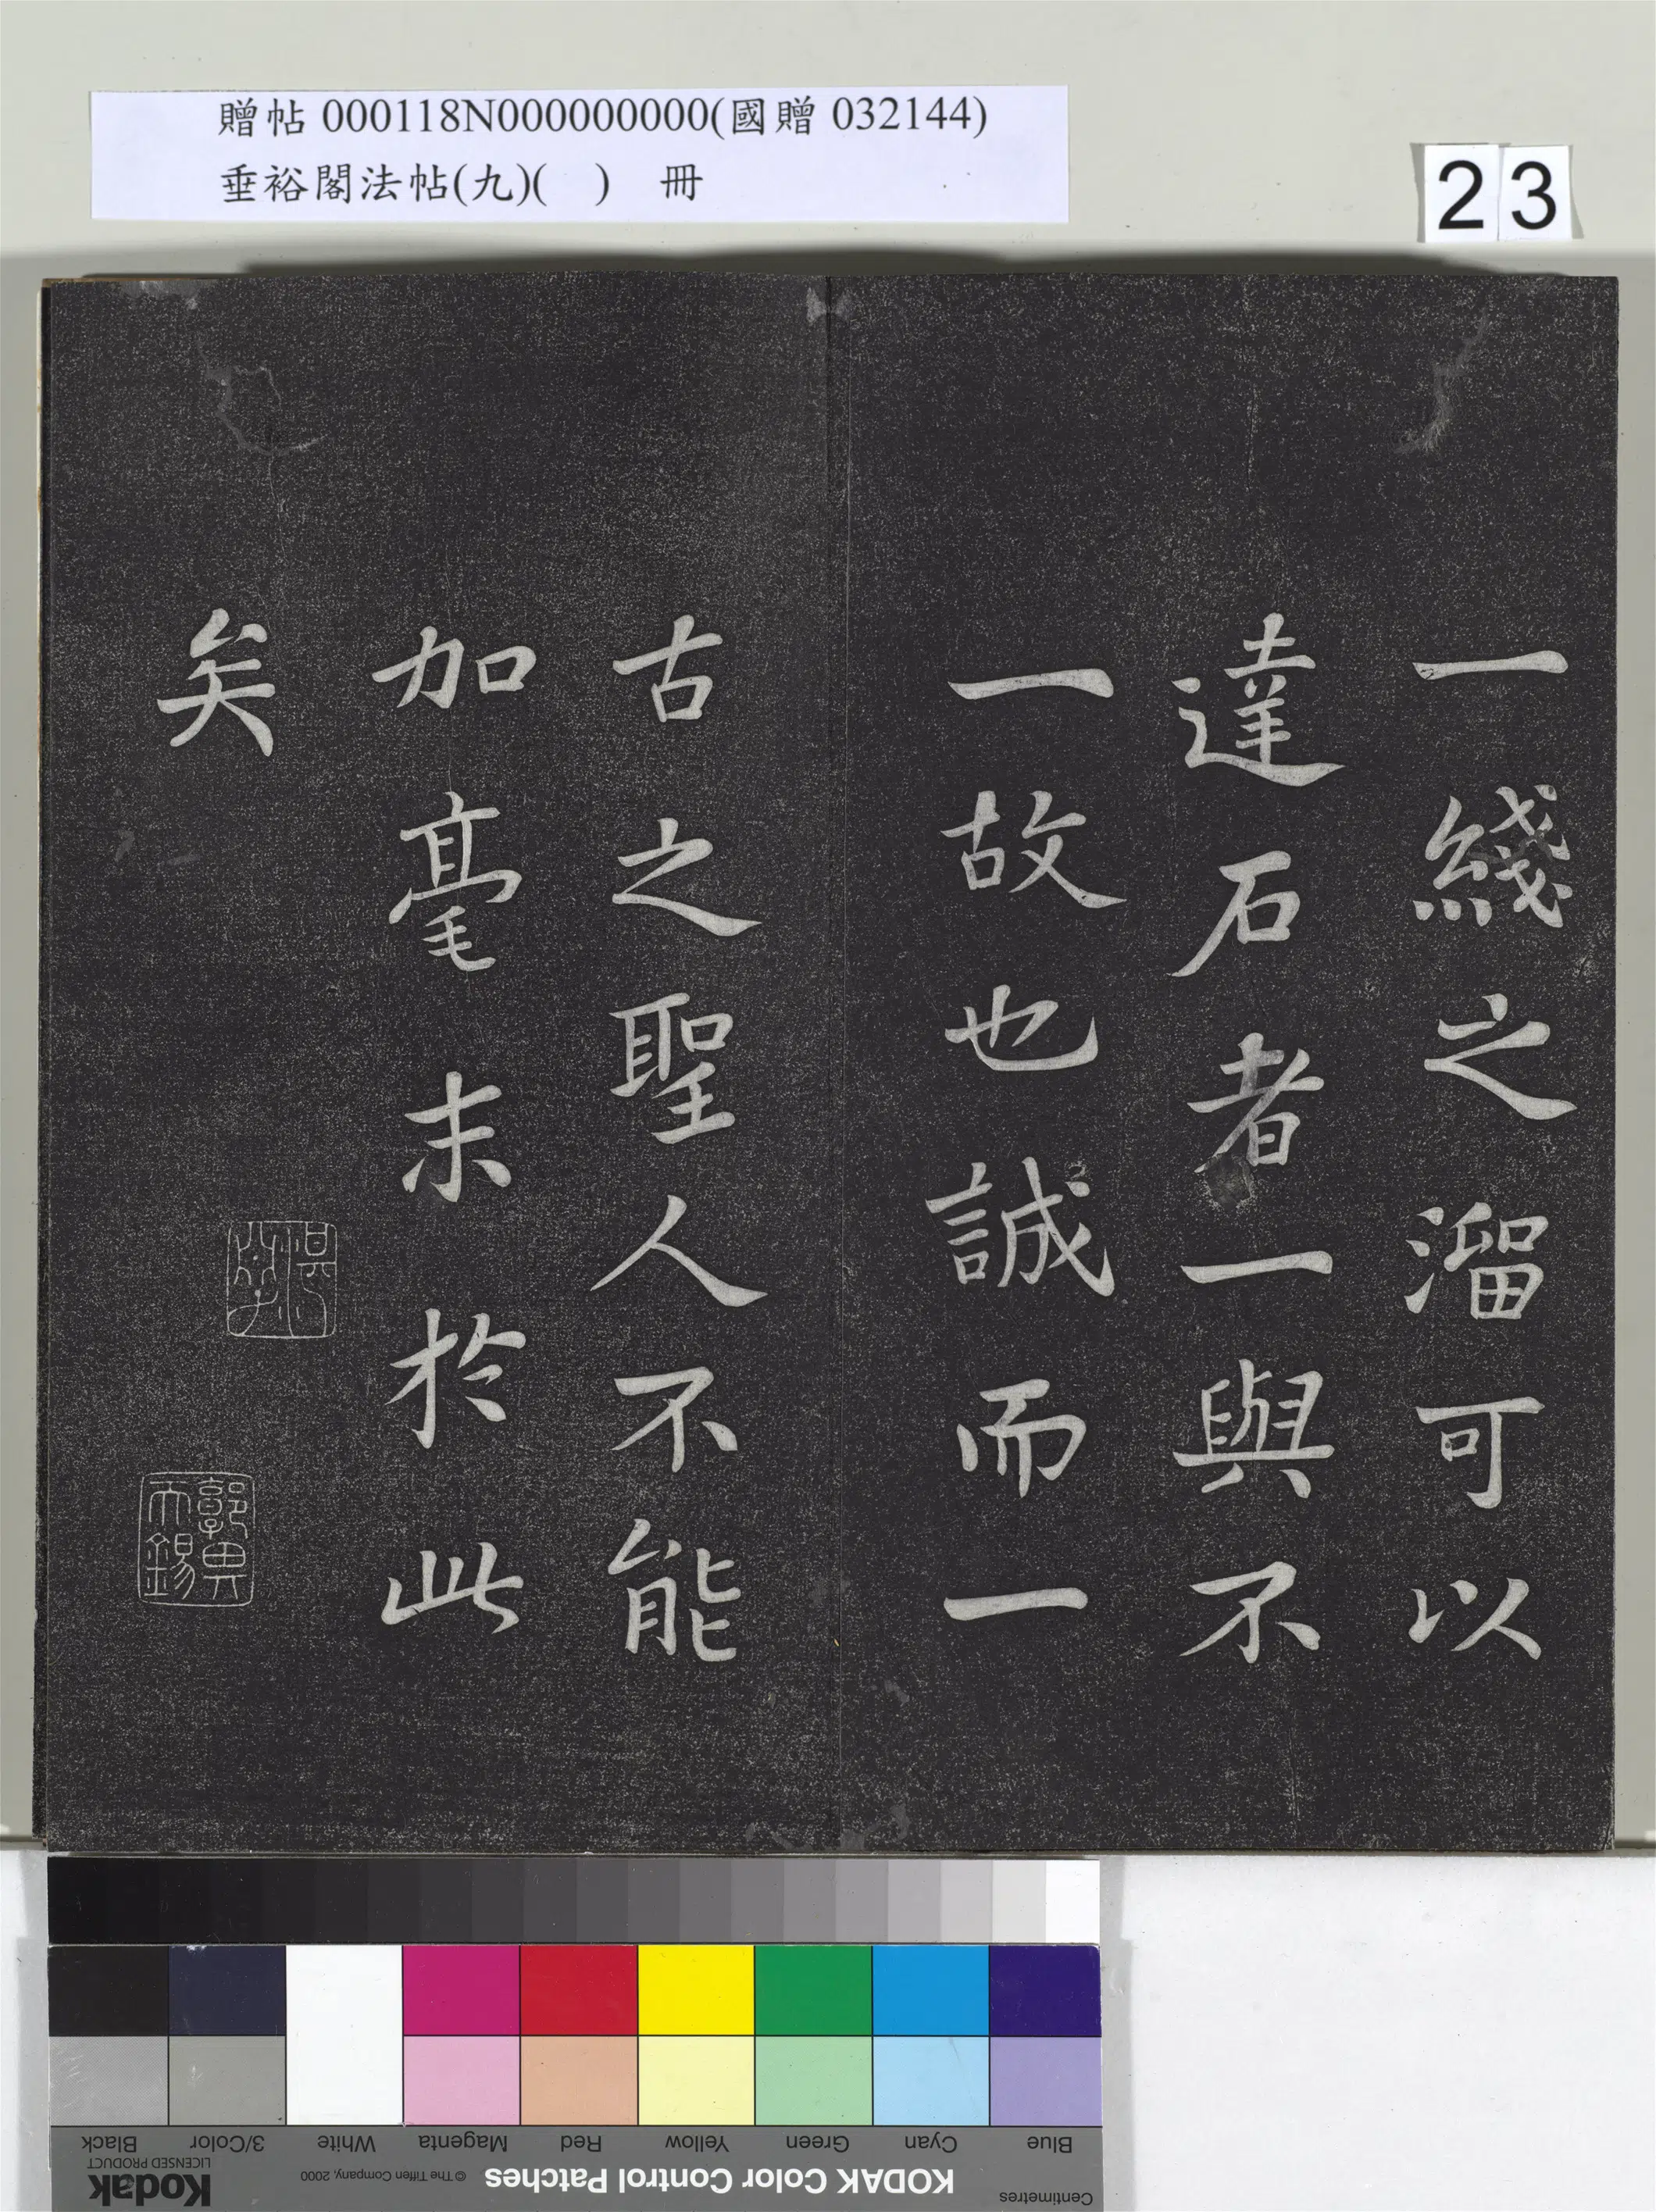 贈帖 000118N000000000(國贈 032144)
垂裕閣法帖(九)( ) 冊
23
一綫之溜可以
達石者一與不
一故也誠而一
古之聖人不能
加毫末於此
矣
郭畀
天錫
Blue
Cyan
Green
Yellow
Red
Magenta
White
3/Color
Black
Centimetres
KODAK Color Control Patches
© The Tiffen Company, 2000
Kodak
LICENSED PRODUCT